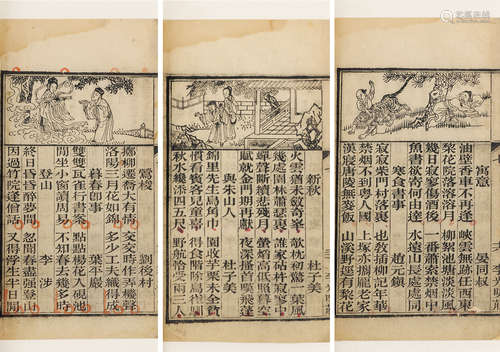 鶯梭 劉後村
擲柳遷喬大有情 交交時作弄機聲
洛陽三月花如錦 多少工夫織得成
暮春即事 葉平巖
雙雙瓦雀行書案 點點楊花入硯池
閒坐小窗讀周易 不知春去幾多時
登山 李涉
終日昏昏醉夢間 忽聞春盡強登山
因過竹院逢僧話 又得浮生半日閒
新秋 杜子美
火雲猶未斂奇峰 欹枕初驚一葉風
幾處園林蕭瑟裏 誰家砧杵寂寥中
蟬聲斷續悲殘月 螢焰高低照暮空
賦就金門期再獻 夜深搔首嘆飛蓬
與朱山人 杜子美
錦里先生烏角巾 園收芋栗未全貧
慣看賓客兒童喜 得食階除鳥雀馴
秋水纔添四五尺 野航恰受兩三人
寓意 晏同叔
油壁香車不再逢 峽雲無跡任西東
梨花院落溶溶月 柳絮池塘淡淡風
幾日寂寥傷酒後 一番蕭索禁烟中
魚書欲寄何由達 水遠山長處處同
寒食書事 趙元鎮
寂寂柴門村落裏 也教插柳記年華
禁烟不到粵人國 上塚亦攜龐老家
漢寢唐陵無麥飯 山溪野逕有梨花